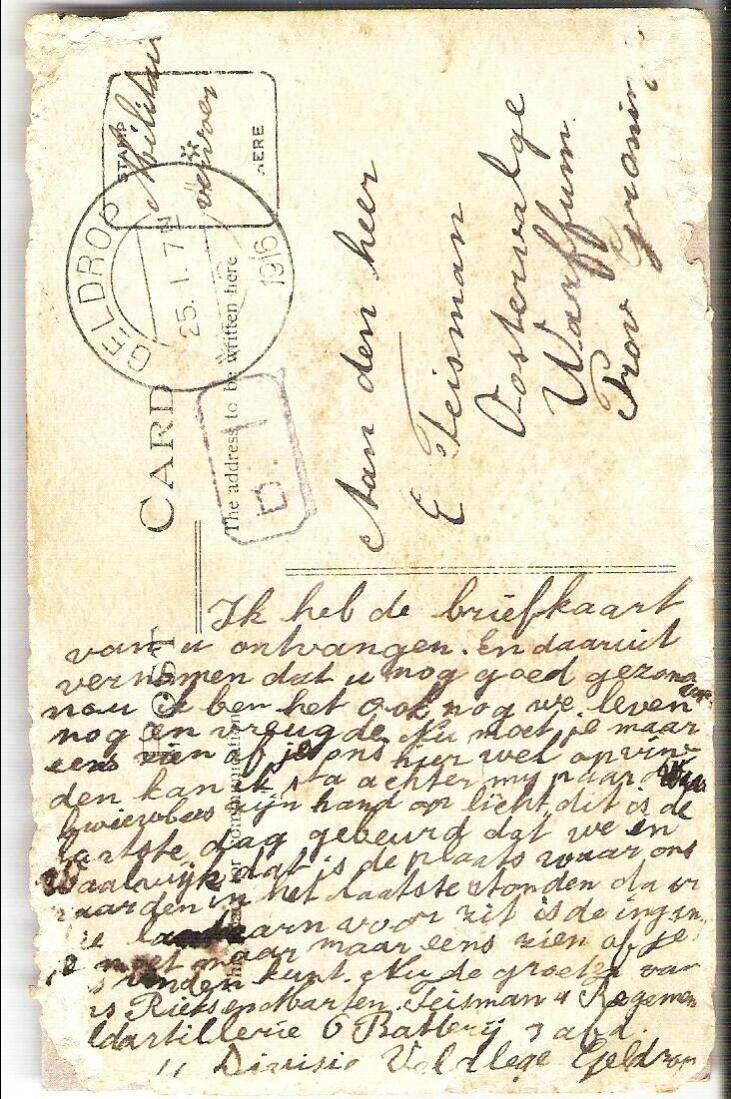 POST CARD
The address to be written here
STAMP
HERE
Militair
vervoer
GELDROP
25.1.7
1916
D. I
Aan den heer
E Teisman
Oosterwalge
Warffum
Prov Gronin
Ik heb de briefkaart
van u ontvangen. En daaruit
vernomen dat u nog goed gezond
nou ik ben het ook nog we leven
nog en vreugde. Nu moet je maar
eens zien of je ons hier wel opvin
den kan ik sta achter mijn paard
zijn hand op licht dit is de
laatste dag gebeurd dat we in
Waalwijk dat is de plaats waar ons
paarden in het laatste stonden da er
voor zit is de ingen
je moet maar maar eens zien of je
vinden kunt. Nu de groetze van
Riets en Marten. Teisman 4 Regemen
ldartillerie 6 Batterij 3 abd.
11 Divisie Veldlege Geldrop